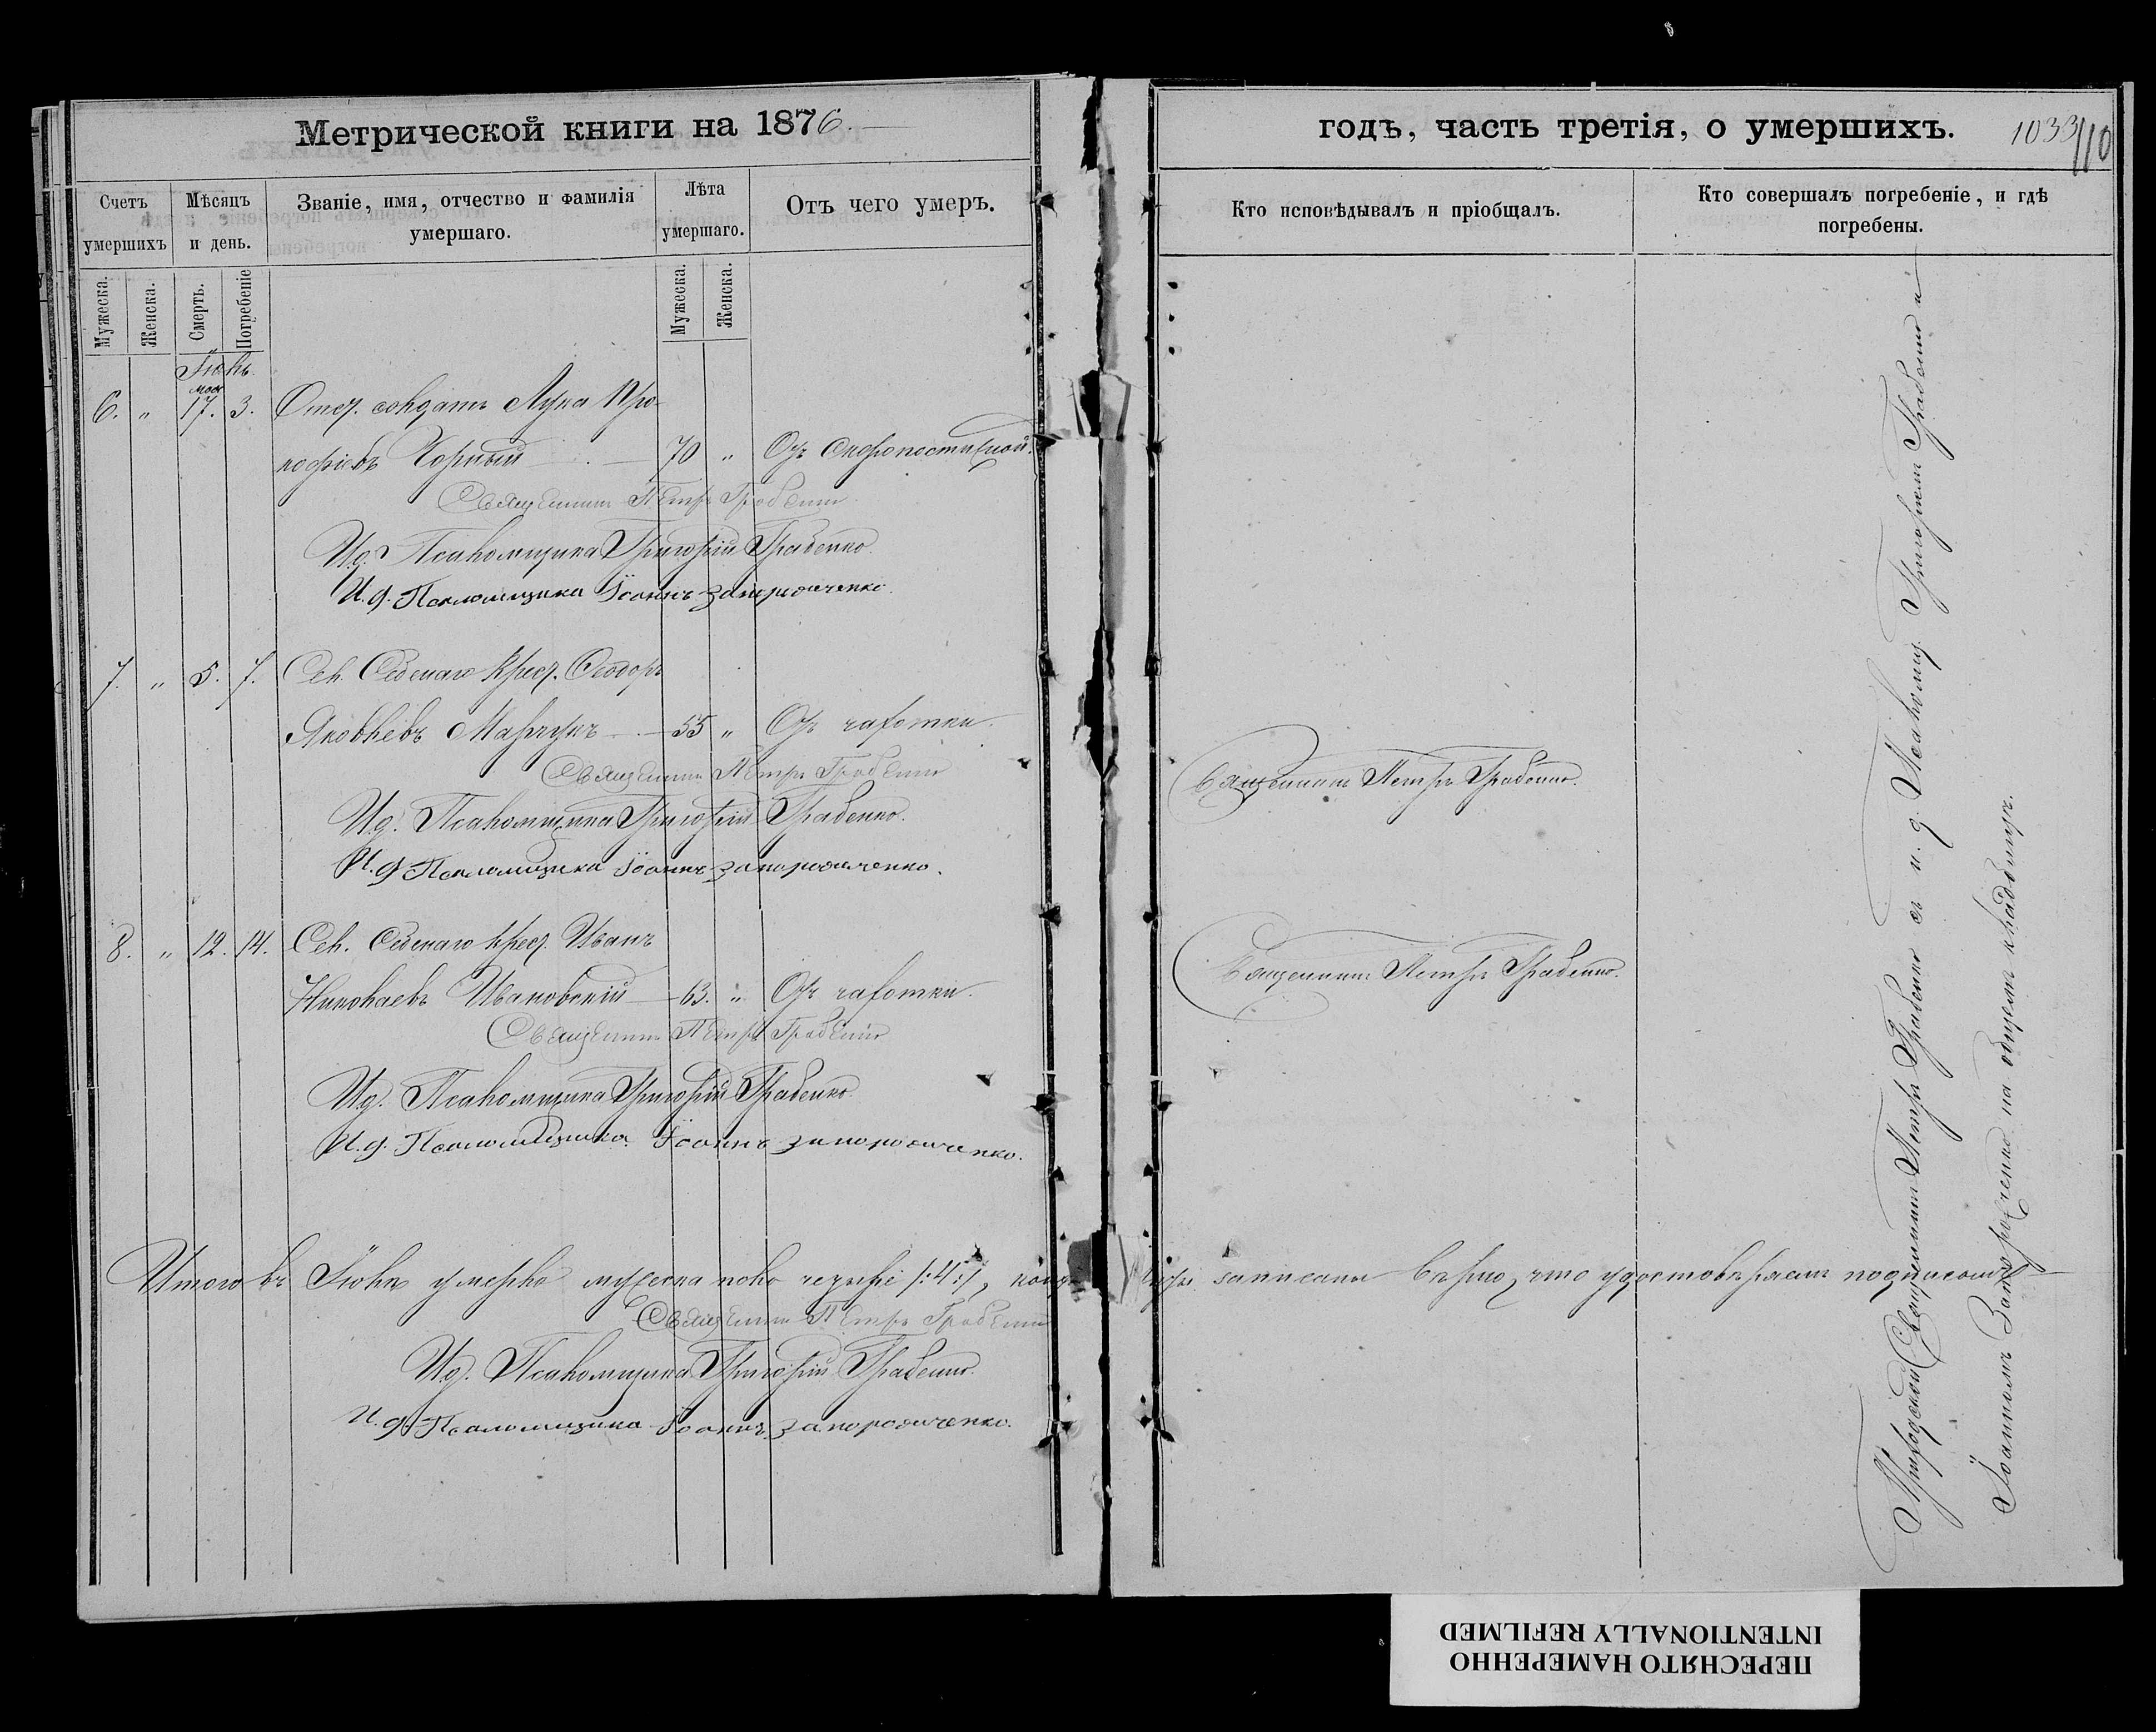 Метрической книги на 1876.
годъ, часть третія, о умершихъ.
1033
110
Счетъ умершихъ
Мѣсяцъ и день.
Званіе, имя, отчество и фамилія умершаго.
Лѣта умершаго.
Отъ чего умеръ.
Кто исповѣдывалъ и пріобщалъ.
Кто совершалъ погребеніе, и гдѣ погребены.
Мужеска.
Женска.
Смерть.
Погребеніе
Мужеска.
Женска.
Іюнь.
мая
6. „ 17. 3. Отст. солдатъ Лука Про-
кофіевъ Чорный 70 „ Отъ скоропостижной.
Священникъ Петръ Грабенко
И. д. Псаломщика Григорій Грабенко.
И. д. Псаломщика Іоаннъ Запорожченко.
7. „ 5. 7. Сел. Крест. Ѳеодоръ
Яковлевъ Марчукъ 55 „ Отъ чахотки.
Священникъ Петръ Грабенко
Священникъ Петръ Грабенко.
И. д. Псаломщика Григорій Грабенко.
И. д. Псаломщика Іоаннъ Запорожченко.
8. „ 12. 14. Сел. Крест. Иванъ
Николаевъ Ивановскій 63. „ Отъ чахотки.
Священникъ Петръ Грабенко
Священникъ Петръ Грабенко.
И. д. Псаломщика Григорій Грабенко
И. д. Псаломщика Іоаннъ Запорожченко.
Итого въ Іюнѣ умерло мужеска пола четыре /:4:/, записаны вѣрно, что удостовѣряемъ подписомъ
Священникъ Петръ Грабенко
И. д. Псаломщика Григорій Грабенко.
И. д. Псаломщика Іоаннъ Запорожченко.
Приходской Священникъ Петръ Грабенко съ и. д. Псаломщ. Григоріемъ Грабенко и
Іоанномъ Запорожченко на общемъ кладбищѣ.
ПЕРЕСНЯТО НАМЕРЕННО
INTENTIONALLY REFILMED